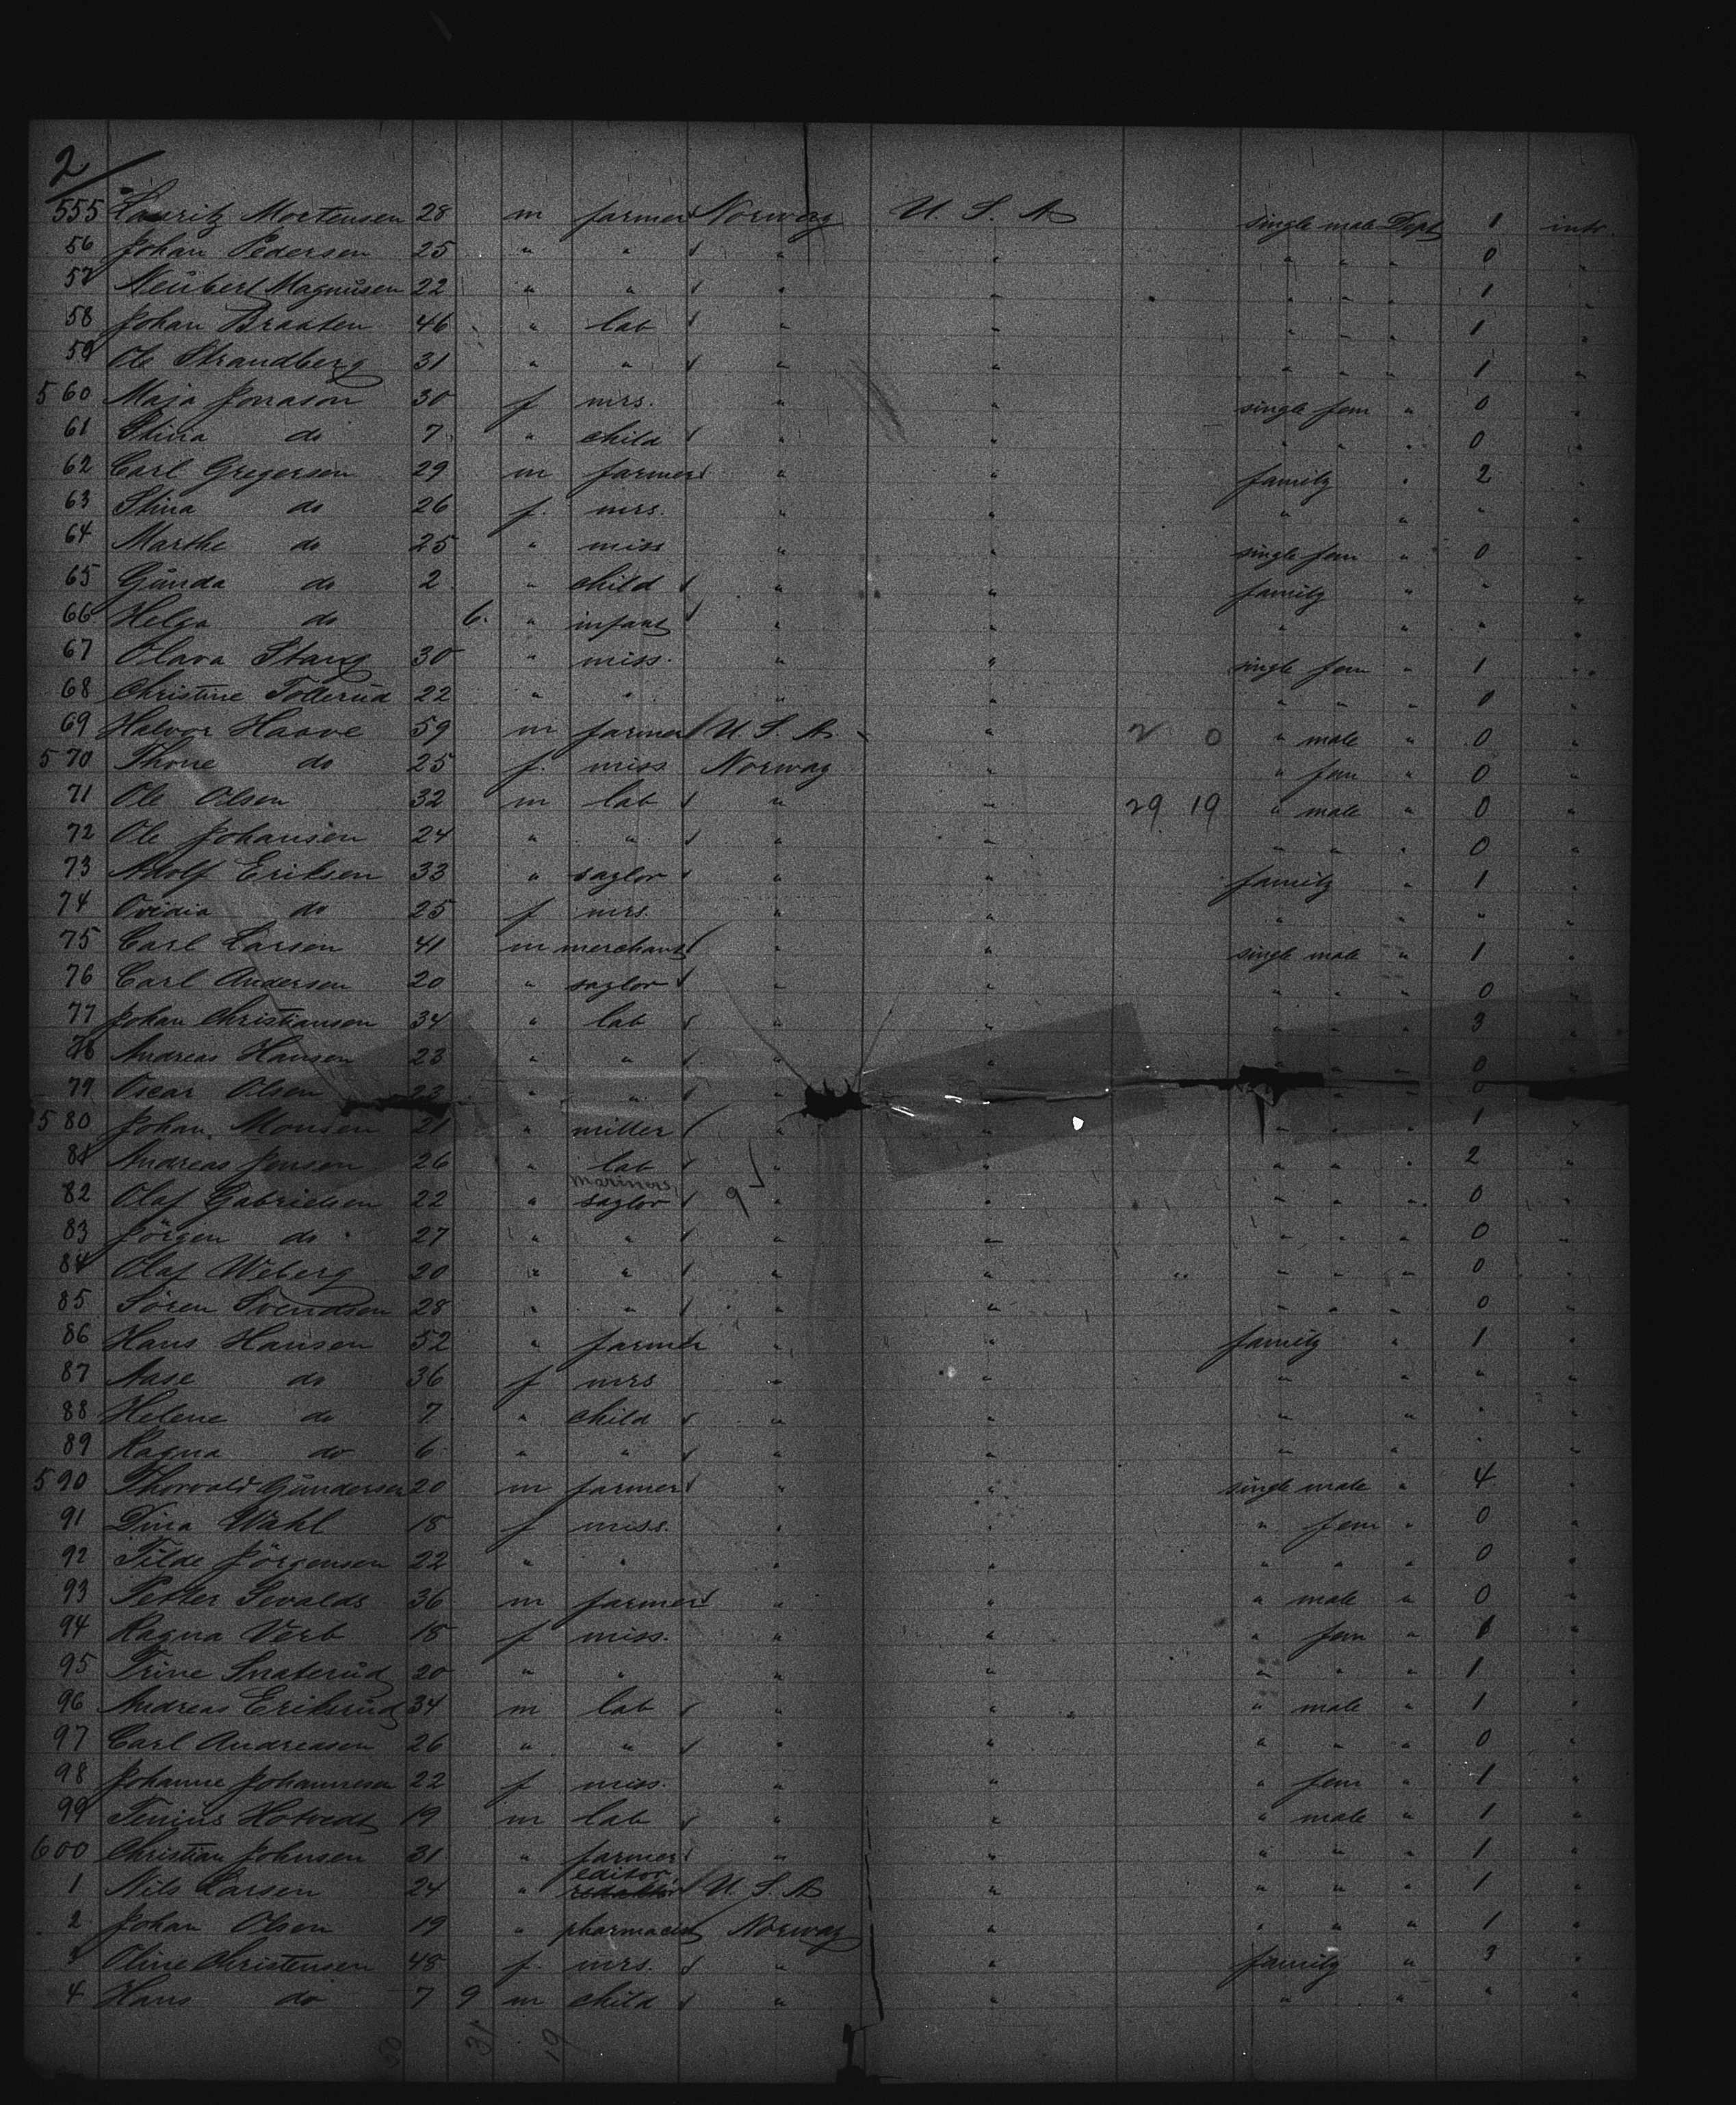 2
555 Lauritz Mortensen 28 m farmer Norway U. S. A single male Dept 1 intr
56 Johan Pedersen 25 " " " " " " " 0 "
57 Neübert Magnüsen 22 " " " " " " " 1 "
58 Johan Braaten 46 " lab " " " " " 1 "
59 Ole Strandberg 31 " " " " " " " 1 "
560 Maja Jonason 30 f mrs. " " single fem " 0 "
61 Stina do 7 " child " " " " " 0 "
62 Carl Gregersen 29 m farmer " " family " 2 "
63 Stina do 26 f. mrs. " " " " " "
64 Marthe do 25 " miss " " single fem " 0 "
65 Günda do 2 " child " " family " " "
66 Helga do 6. " infant " " " " " "
67 Olava Stang 30 " miss. " " single fem " 1 "
68 Christine Tollerüd 22 " " " " " " " 0 "
69 Halvor Haave 59 m farmer U. S. A. " 2 0 " male " 0 "
570 Thone do 25 f. miss Norway " " fem " 0 "
71 Ole Olsen 32 m lab " " 29 19 " male " 0 "
72 Ole Johansen 24 " " " " " " " 0 "
73 Adolf Eriksen 33 " saylor " " family " 1 "
74 Ovidia do 25 f mrs. " " " " " "
75 Carl Larsen 41 m merchant " " single male " 1 "
76 Carl Andersen 20 " saylor " " " " " 0 "
77 Johan Christiansen 34 " lab " " " " " 3 "
78 Andreas Hansen 23 " " " " " " " 0 "
79 Oscar Olsen 23 " " " " " " " 0 "
580 Johan Monsen 21 " miller " " " " " 1 "
81 Andreas Jensen 26 " lab " " " " " 2 "
mariners 9
82 Olaf Gabrielsen 22 " saylor " " " " " 0 "
83 Jörgen do 27 " " " " " " " 0 "
84 Olaf Weberg 20 " " " " " " " 0 "
85 Sören Svendsen 28 " " " " " " " 0 "
86 Hans Hansen 52 " farmer " " family " 1 "
87 Aase do 36 f mrs " " " " " "
88 Helene do 7 " child " " " " " "
89 Ragna do 6 " " " " " " " "
590 Thorvald Gündersen 20 m farmer " " single male " 4 "
91 Dina Wahl 18 f miss. " " " fem " 0 "
92 Tilde Jörgensen 22 " " " " " " " 0 "
93 Petter Sevalds 36 m farmer " " " male " 0 "
94 Ragna Verb 18 f miss. " " " fem " 1 "
95 Trine Snaterüd 20 " " " " " " " 1 "
96 Andreas Erikerüd 34 m lab " " " male " 1 "
97 Carl Andreasen 26 " " " " " " " 0 "
98 Johanne Johannesen 22 f miss. " " " fem " 1 "
99 Tenius Hotvedt 19 m lab " " " male " 1 "
600 Christian Johnsen 31 " farmer " " " " " 1 "
editor
1 Nils Larsen 24 " redaktör U. S. A " " " " 1 "
2 Johan Olsen 19 " pharmacist Norway " " " " 1 "
3 Oline Christensen 48 f. mrs. " " family " 3 "
4 Hans do 7 9 m child " " " " " "
50 31 19